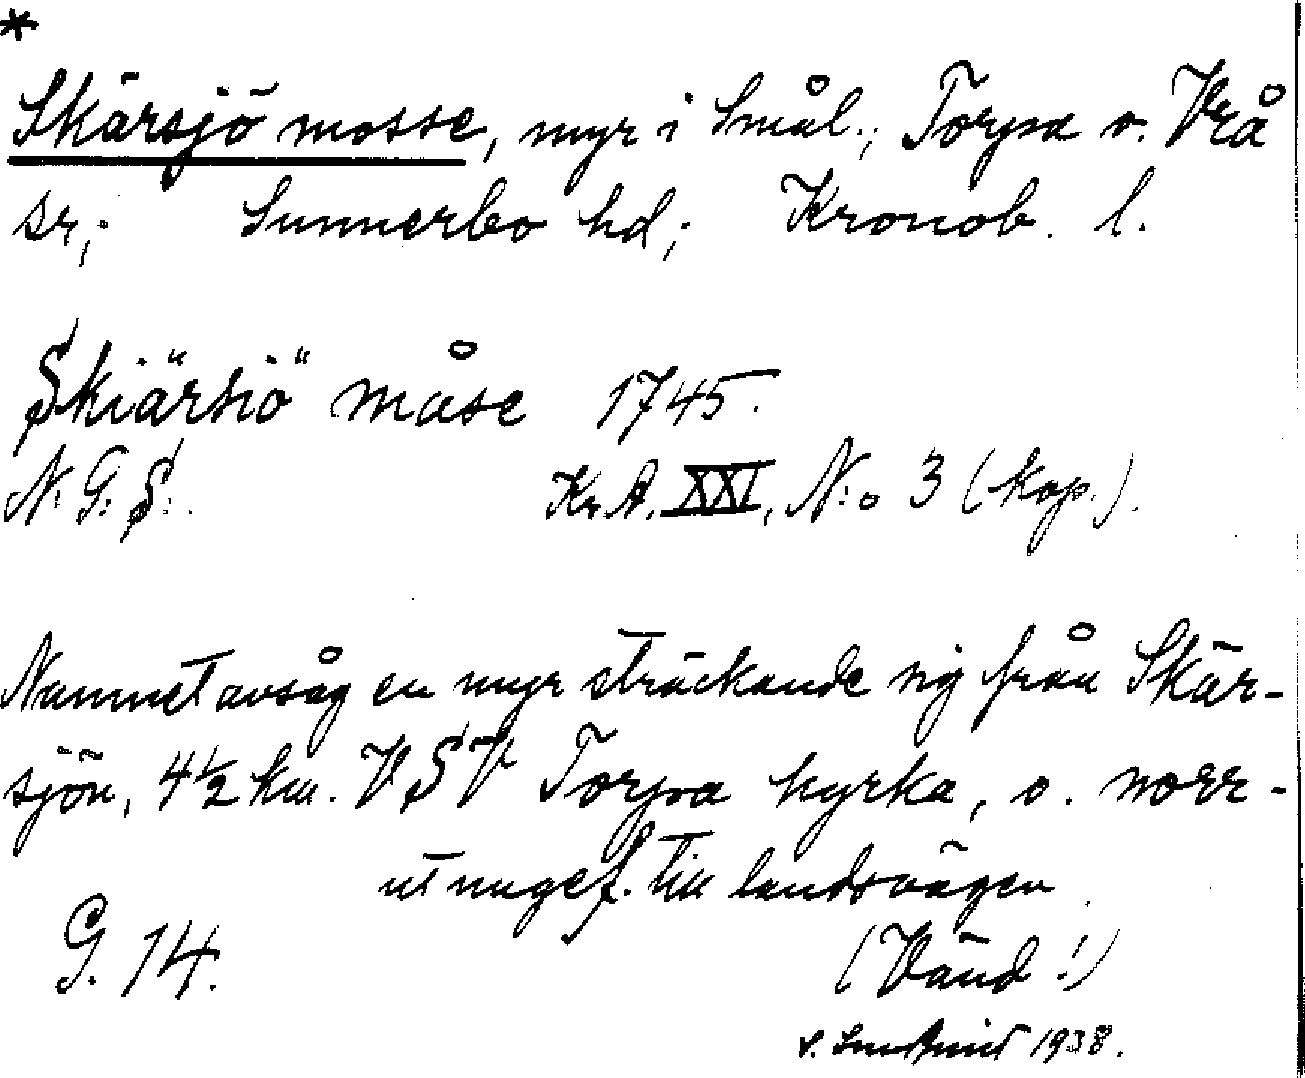 *
Skärsjö mosse, myr i Smål.; Torpa o. Vrå
sr; Sunnerbo hd; Kronob. l.
Skiärsiö måse 1745.
N. G. S. Kr. A. XXI, N:o 3 (kop.).
Namnet avsåg en myr sträckande sig från Skär-
sjön, 4½ km. VSV Torpa kyrka, o. norr-
ut ungef. till landsvägen.
G. 14. (Vänd!)
1938.